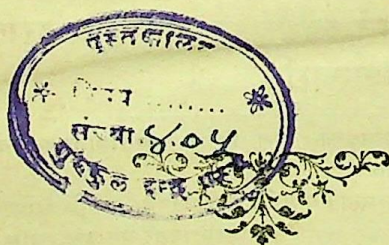 पुस्तकालय
विषय ........
संख्या ४.०५
गुरुकुल